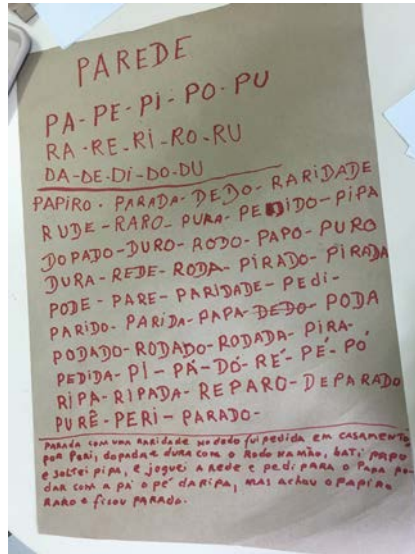 PAREDE
PA-PE-PI-PO-PU
RA-RE-RI-RO-RU
DA-DE-DI-DO-DU
PAPIRO-PARADA-DEDO-RARIDADE
RUDE-RARO-PURA-PEDIDO-PIPA
DOPADO-DURO-RODO-PAPO-PURO
DURA-REDE-RODA-PIRADO-PIRADA
PODE-PARE-PARIDADE-PEDI-
PARIDO-PARIDA-PAPA-DEDO-PODA
PODADO-RODADO-RODADA-PIRA-
PEDIDA-PI-PÁ-DÓ-RÉ-PÉ-PÓ
RIPA-RIPADA-REPARO-DEPARADO
PURÊ-PERI-PARADO-
PARADA COM UMA RARIDADE NO DEDO FUI PEDIDA EM CASAMENTO
POR PERI, DOPADA E DURA COM O RODO NA MÃO, BATI PAPO
E SOLTEI PIPA, E JOGUEI A REDE E PEDI PARA O PAPA PO-
DAR COM A PÁ O PÉ DA RIPA, MAS ACHOU O PAPIRO
RARO E FICOU PARADO.